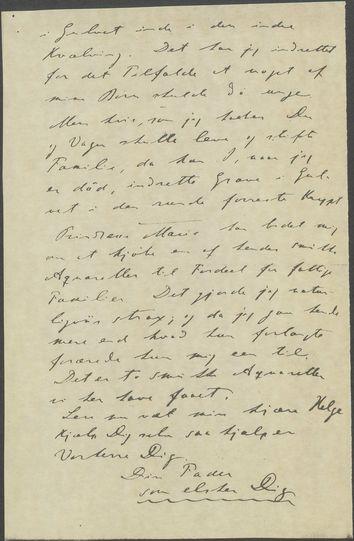 i Gulvet inde i den indre
Hvælving. Det har jeg indrettet
for det Tilfælde at noget af
mine Børn skulde dø unge.
Men hvis, som jeg haaber Du
og Vagn skulle leve og stifte
Familie, da kan I, naar jeg
er død, indrette Grave i Gul-
vet i den runde forreste Krypt
Prindsesse Marie har bedet mig
om at kjøbe en af hendes smukke
Aquareller til Fordeel for fattige
Familier. Det gjorde jeg natur-
ligviis strax; og da jeg gav hende
mere end hvad hun forlangte
forærede hun mig een til.
Det er to smukke Aquareller
vi her have faaet.
Lev nu vel min kjære Helge
Hjælp Dig selv saa hjælper
Vorherre Dig.
Din Fader
som elsker Dig